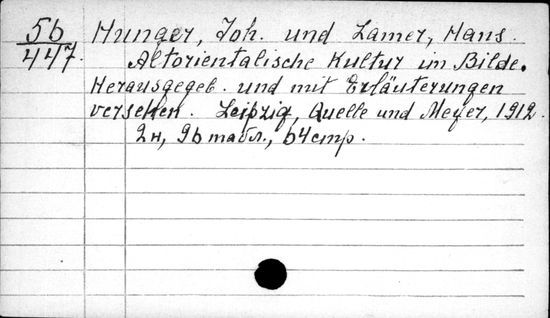 56
447.
Hunger, Joh. und Lamer, Hans.
Altorientalische Kultur im Bilde.
Herausgegeb. und mit Erläuterungen
versehen. Leipzig, Quelle und Meyer, 1912.
2н, 96 табл., 64 стр.